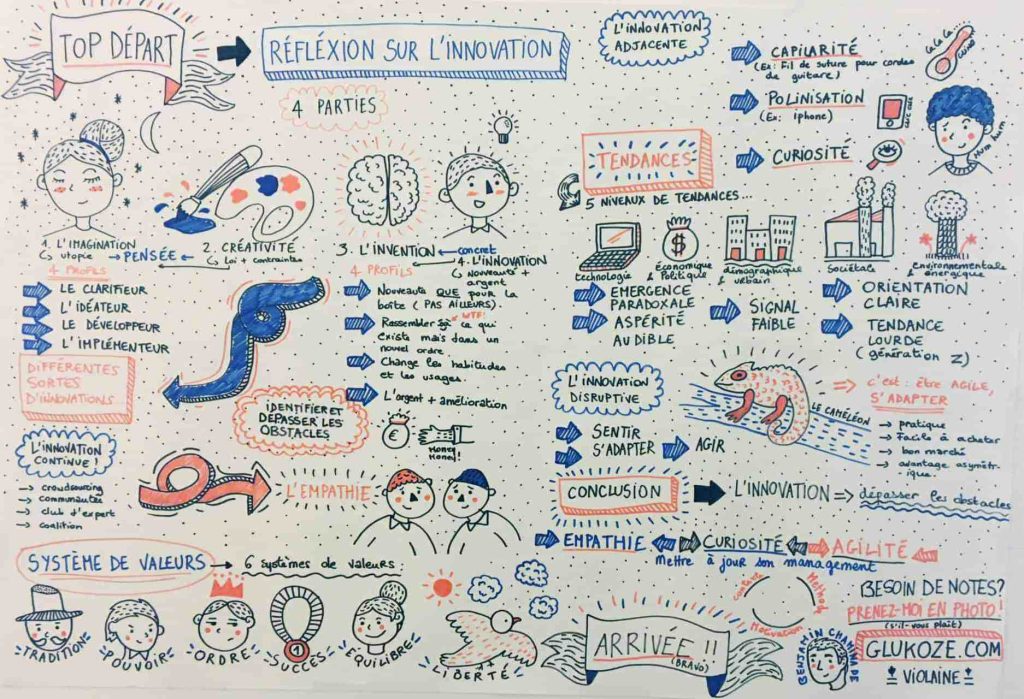 TOP DÉPART
RÉFLÉXION SUR L'INNOVATION
4 PARTIES
1. L'IMAGINATION
↳ utopie
→ PENSÉE ←
2. CRÉATIVITÉ
↳ Loi + contraintes
3. L'INVENTION
← concret
→ 4. L'INNOVATION
↳ Nouveauté +
argent
4 PROFILS
LE CLARIFIEUR
L'IDÉATEUR
LE DÉVELOPPEUR
L'IMPLÉMENTEUR
4 PROFILS
Nouveauté QUE pour la
boîte (PAS AILLEURS)
WTF!
Rassembler ce qui
existe mais dans un
nouvel ordre.
Change les habitudes
et les usages.
L'argent + amélioration
DIFFÉRENTES
SORTES
D'INNOVATIONS...
L'INNOVATION
CONTINUE !
→ crowdsourcing
→ communautés
→ club d'expert
→ coalition
IDENTIFIER ET
DÉPASSER LES
OBSTACLES
€
Money
Money!
L'EMPATHIE
SYSTÈME DE VALEURS
→ 6 systèmes de valeurs
TRADITION
POUVOIR
ORDRE
1
SUCCÈS
EQUILIBRE
LIBERTÉ
L'INNOVATION
ADJACENTE
CAPILARITÉ
(Ex: Fil de suture pour cordes
de guitare)
POLINISATION
(Ex: iphone)
CURIOSITÉ
La La La
Hum hum
TENDANCES
5 NIVEAUX DE TENDANCES...
technologie
$
Économique
& Politique
démographique
& urbain
Sociétale
environnementale
& énergique
EMERGENCE
PARADOXALE
ASPÉRITÉ
AUDIBLE
SIGNAL
FAIBLE
ORIENTATION
CLAIRE
TENDANCE
LOURDE
(génération Z)
L'INNOVATION
DISRUPTIVE
SENTIR
S'ADAPTER
AGIR
LE CAMÉLÉON
⇒ c'est : être AGILE,
S'ADAPTER
→ pratique
→ Facile à acheter
→ bon marché
→ avantage asymét-
rique.
CONCLUSION
L'INNOVATION ⇒ dépasser les obstacles
EMPATHIE
CURIOSITÉ
AGILITÉ
mettre à jour son management
ARRIVÉE !!
(BRAVO)
Method
Motivation
BENJAMIN CHAMINADE
BESOIN DE NOTES?
PRENEZ-MOI EN PHOTO !
(s'il-vous plaît)
GLUKOZE.COM
VIOLAINE